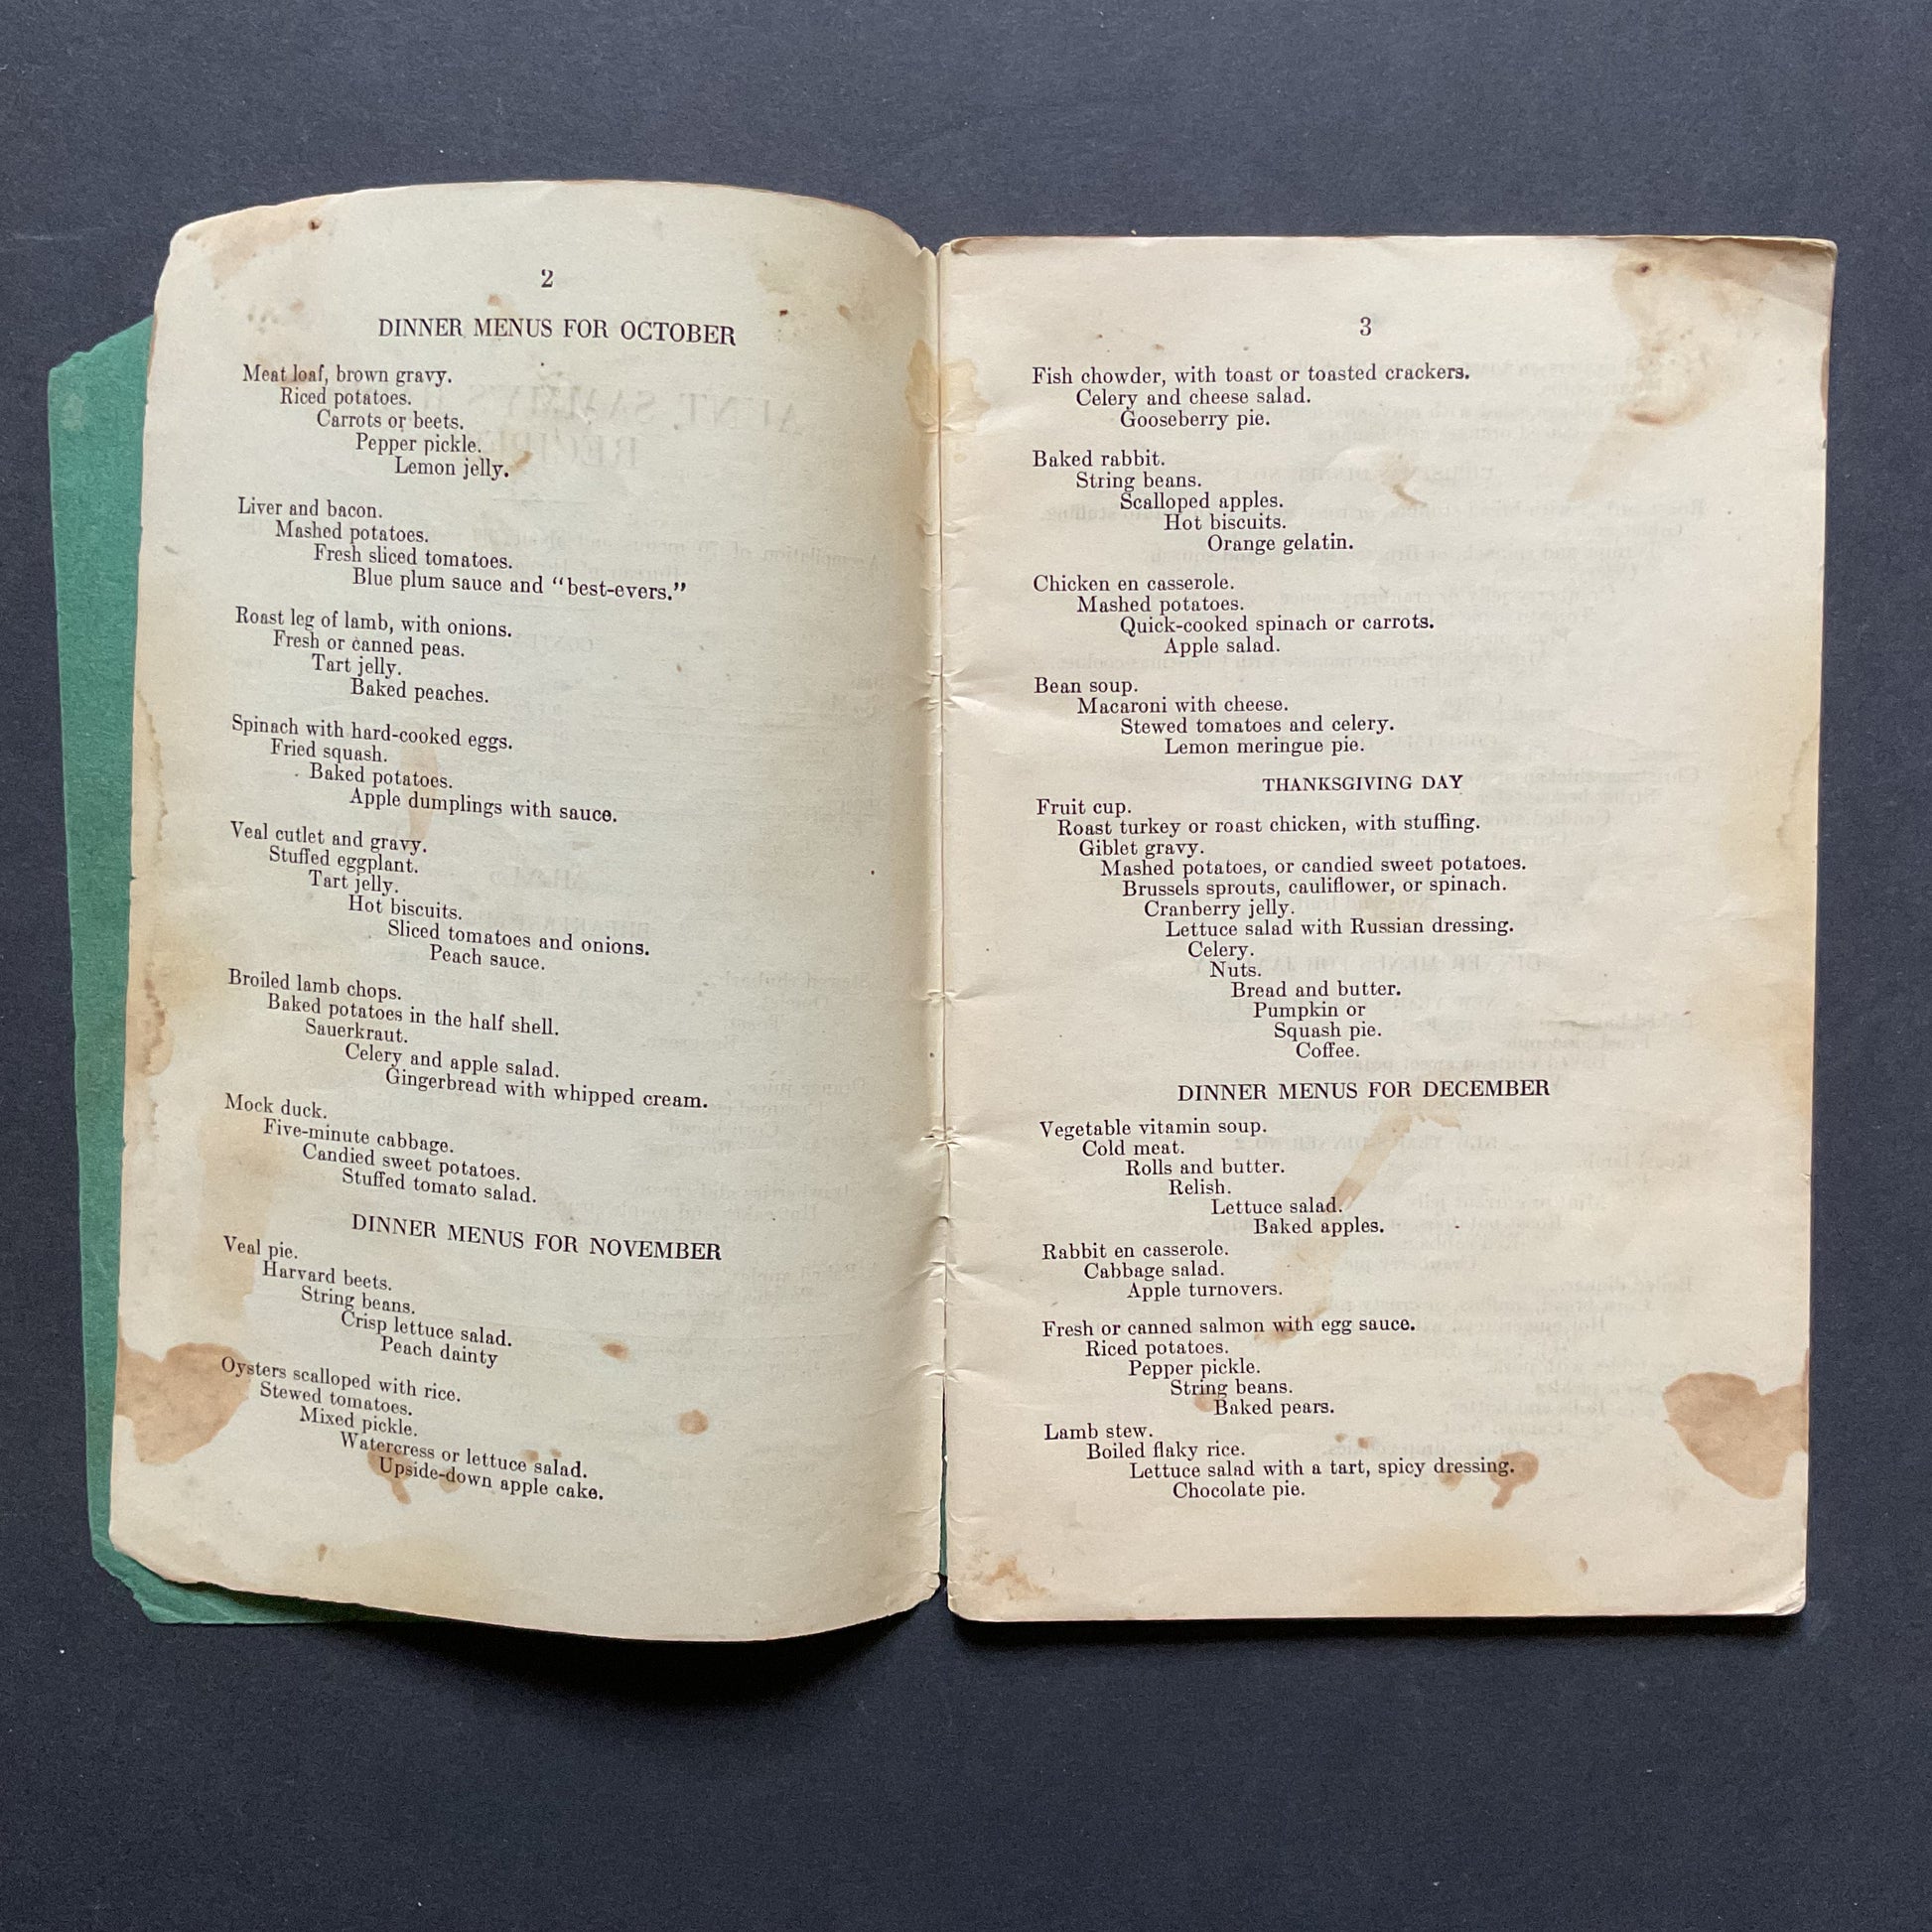 2
DINNER MENUS FOR OCTOBER
Meat loaf, brown gravy.
Riced potatoes.
Carrots or beets.
Pepper pickle.
Lemon jelly.
Liver and bacon.
Mashed potatoes.
Fresh sliced tomatoes.
Blue plum sauce and “best-evers.”
Roast leg of lamb, with onions.
Fresh or canned peas.
Tart jelly.
Baked peaches.
Spinach with hard-cooked eggs.
Fried squash.
Baked potatoes.
Apple dumplings with sauce.
Veal cutlet and gravy.
Stuffed eggplant.
Tart jelly.
Hot biscuits.
Sliced tomatoes and onions.
Peach sauce.
Broiled lamb chops.
Baked potatoes in the half shell.
Sauerkraut.
Celery and apple salad.
Gingerbread with whipped cream.
Mock duck.
Five-minute cabbage.
Candied sweet potatoes.
Stuffed tomato salad.
DINNER MENUS FOR NOVEMBER
Veal pie.
Harvard beets.
String beans.
Crisp lettuce salad.
Peach dainty
Oysters scalloped with rice.
Stewed tomatoes.
Mixed pickle.
Watercress or lettuce salad.
Upside-down apple cake.
3
Fish chowder, with toast or toasted crackers.
Celery and cheese salad.
Gooseberry pie.
Baked rabbit.
String beans.
Scalloped apples.
Hot biscuits.
Orange gelatin.
Chicken en casserole.
Mashed potatoes.
Quick-cooked spinach or carrots.
Apple salad.
Bean soup.
Macaroni with cheese.
Stewed tomatoes and celery.
Lemon meringue pie.
THANKSGIVING DAY
Fruit cup.
Roast turkey or roast chicken, with stuffing.
Giblet gravy.
Mashed potatoes, or candied sweet potatoes.
Brussels sprouts, cauliflower, or spinach.
Cranberry jelly.
Lettuce salad with Russian dressing.
Celery.
Nuts.
Bread and butter.
Pumpkin or
Squash pie.
Coffee.
DINNER MENUS FOR DECEMBER
Vegetable vitamin soup.
Cold meat.
Rolls and butter.
Relish.
Lettuce salad.
Baked apples.
Rabbit en casserole.
Cabbage salad.
Apple turnovers.
Fresh or canned salmon with egg sauce.
Riced potatoes.
Pepper pickle.
String beans.
Baked pears.
Lamb stew.
Boiled flaky rice.
Lettuce salad with a tart, spicy dressing.
Chocolate pie.